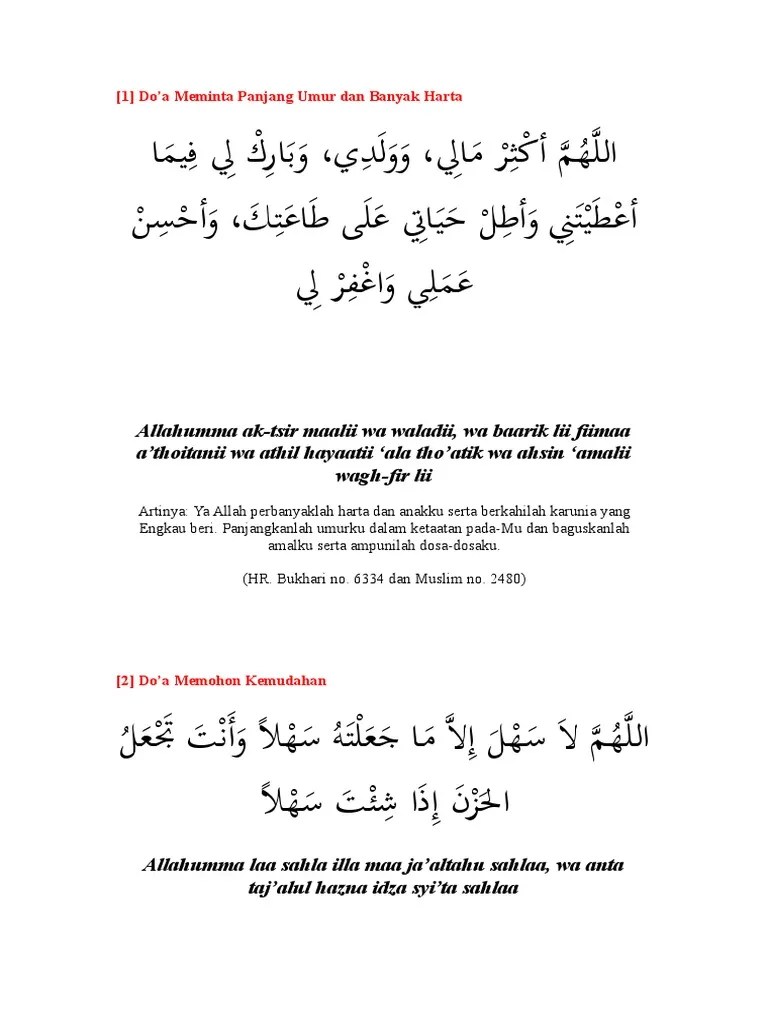 [1] Do'a Meminta Panjang Umur dan Banyak Harta
اللَّهُمَّ أكْثِرْ مَالِي، وَوَلَدِي، وَبَارِكْ لِي فِيمَا
أعْطَيْتَنِي وَأطِلْ حَيَاتِي عَلَى طَاعَتِكَ، وَأحْسِنْ
عَمَلِي وَاغْفِرْ لِي
Allahumma ak-tsir maalii wa waladii, wa baarik lii fiimaa
a'thoitanii wa athil hayaatii ‘ala tho’atik wa ahsin ‘amalii
wagh-fir lii
Artinya: Ya Allah perbanyaklah harta dan anakku serta berkahilah karunia yang
Engkau beri. Panjangkanlah umurku dalam ketaatan pada-Mu dan baguskanlah
amalku serta ampunilah dosa-dosaku.
(HR. Bukhari no. 6334 dan Muslim no. 2480)
[2] Do'a Memohon Kemudahan
اللَّهُمَّ لاَ سَهْلَ إِلاَّ مَا جَعَلْتَهُ سَهْلاً وَأَنْتَ تَجْعَلُ
الحَزْنَ إِذَا شِئْتَ سَهْلاً
Allahumma laa sahla illa maa ja’altahu sahlaa, wa anta
taj’alul hazna idza syi’ta sahlaa